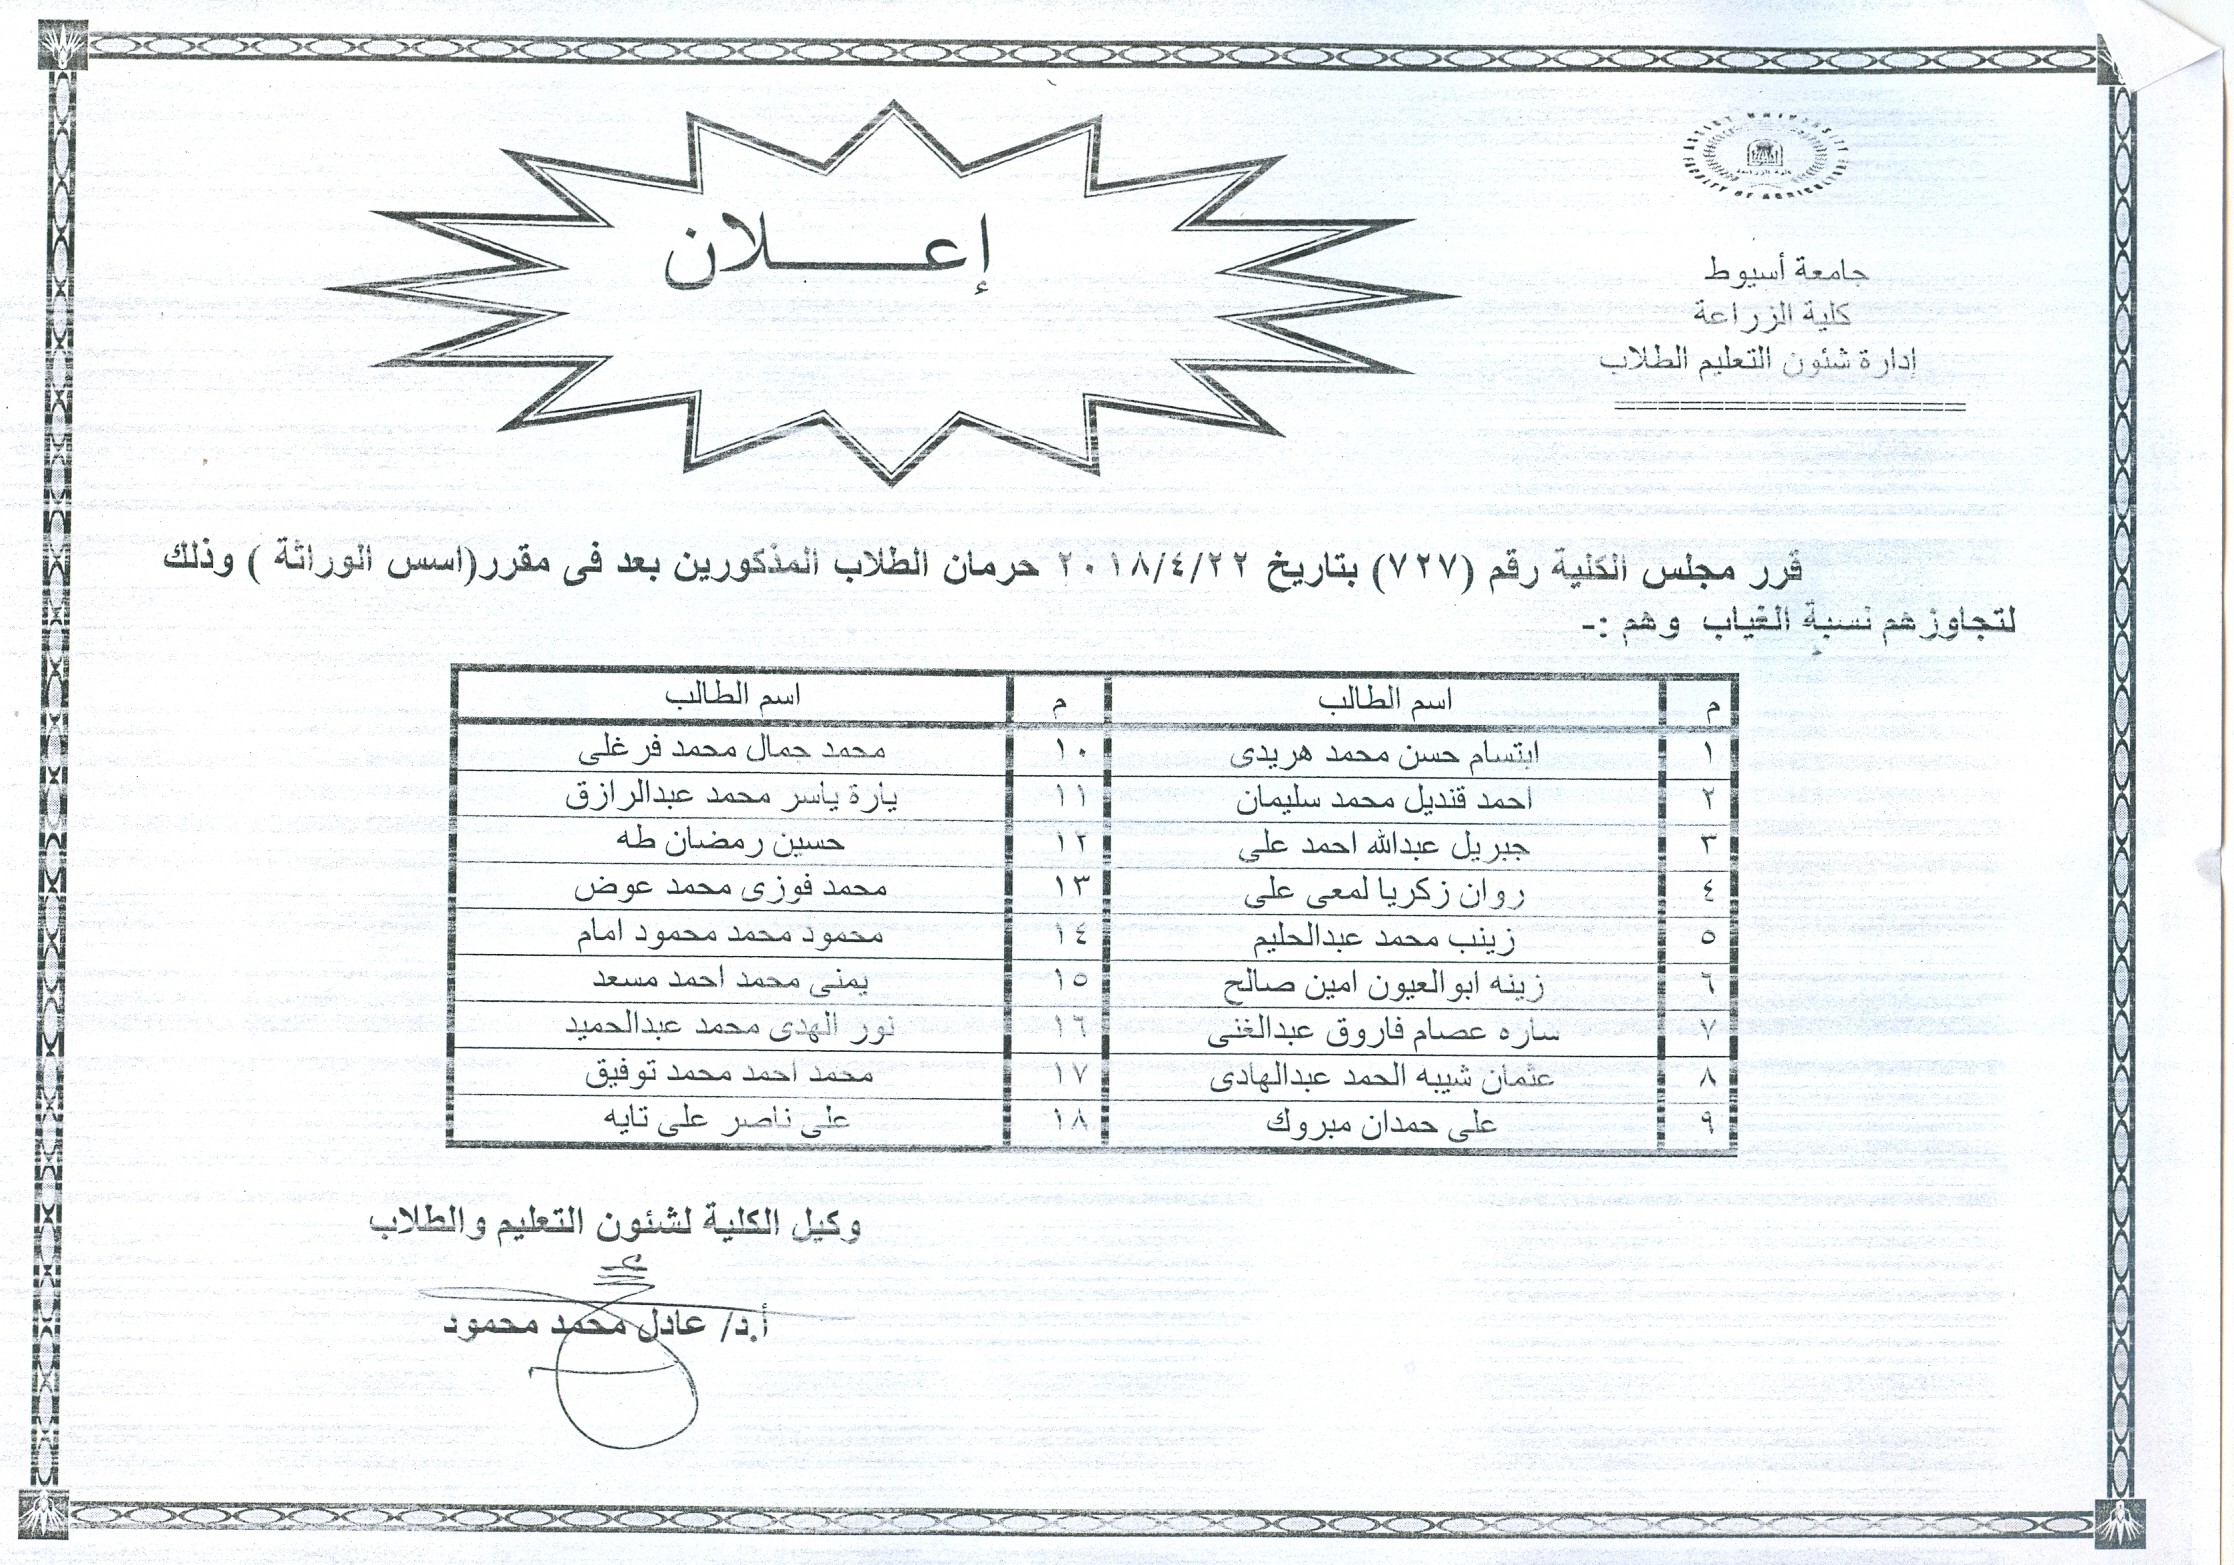 ASSIUT UNIVERSITY
كلية الزراعة
FACULTY OF AGRICULTURE
جامعة أسيوط
كلية الزراعة
إدارة شئون التعليم الطلاب
إعـــــلان
قرر مجلس الكلية رقم (٧٢٧) بتاريخ ٢٠١٨/٤/٢٢ حرمان الطلاب المذكورين بعد فى مقرر(اسس الوراثة ) وذلك
لتجاوزهم نسبة الغياب وهم :-
م اسم الطالب م اسم الطالب
١ ابتسام حسن محمد هريدى ١٠ محمد جمال محمد فرغلى
٢ احمد قنديل محمد سليمان ١١ يارة ياسر محمد عبدالرازق
٣ جبريل عبدالله احمد على ١٢ حسين رمضان طه
٤ روان زكريا لمعى على ١٣ محمد فوزى محمد عوض
٥ زينب محمد عبدالحليم ١٤ محمود محمد محمود امام
٦ زينه ابوالعيون امين صالح ١٥ يمنى محمد احمد مسعد
٧ ساره عصام فاروق عبدالغنى ١٦ نور الهدى محمد عبدالحميد
٨ عثمان شيبه الحمد عبدالهادى ١٧ محمد احمد محمد توفيق
٩ على حمدان مبروك ١٨ على ناصر على تايه
وكيل الكلية لشئون التعليم والطلاب
أ.د/ عادل محمد محمود